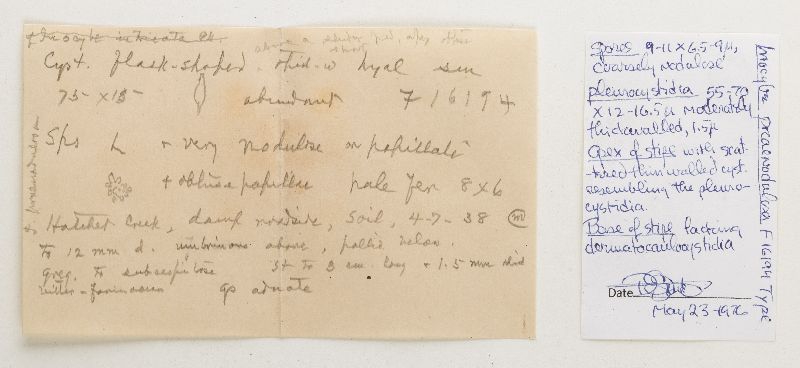 Inocybe intricata
above a
short
Cyst. flask-shaped, thick-w hyal sm
75 × 15 abundant F 16194
Sps L + very nodulose or papillate
+ obtuse papillae pale fer 8 × 6
Hatchet Creek, damp roadside, soil, 4-7-38 m
To 12 mm d. umbrinous above, pallid below.
greg. to subcespitose St to 3 cm long + 1.5 mm thick
bitter-farinaceous gs adnate
I. praenodulosa
Spores 9-11 × 6.5-9µ,
coarsely nodulose
pleurocystidia 55-70
× 12-16.5µ moderately
thickwalled, 1.5µ
apex of stipe with scat-
tered thin walled cyst.
resembling the pleuro-
cystidia.
Base of stipe lacking
dermatocaulocystidia
Date
May 23-1976
Inocybe praenodulosa F 16194 Type